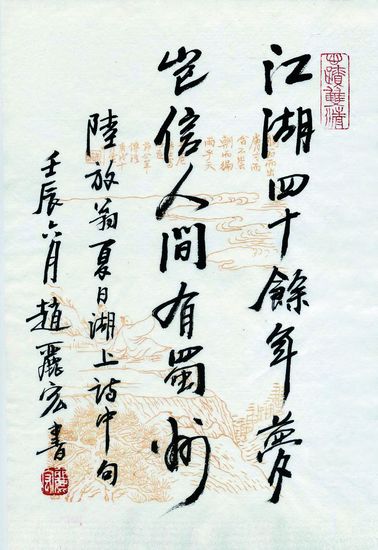 江湖四十餘年夢
岂信人間有蜀州
陸放翁夏日湖上詩中句
壬辰六月趙麗宏書